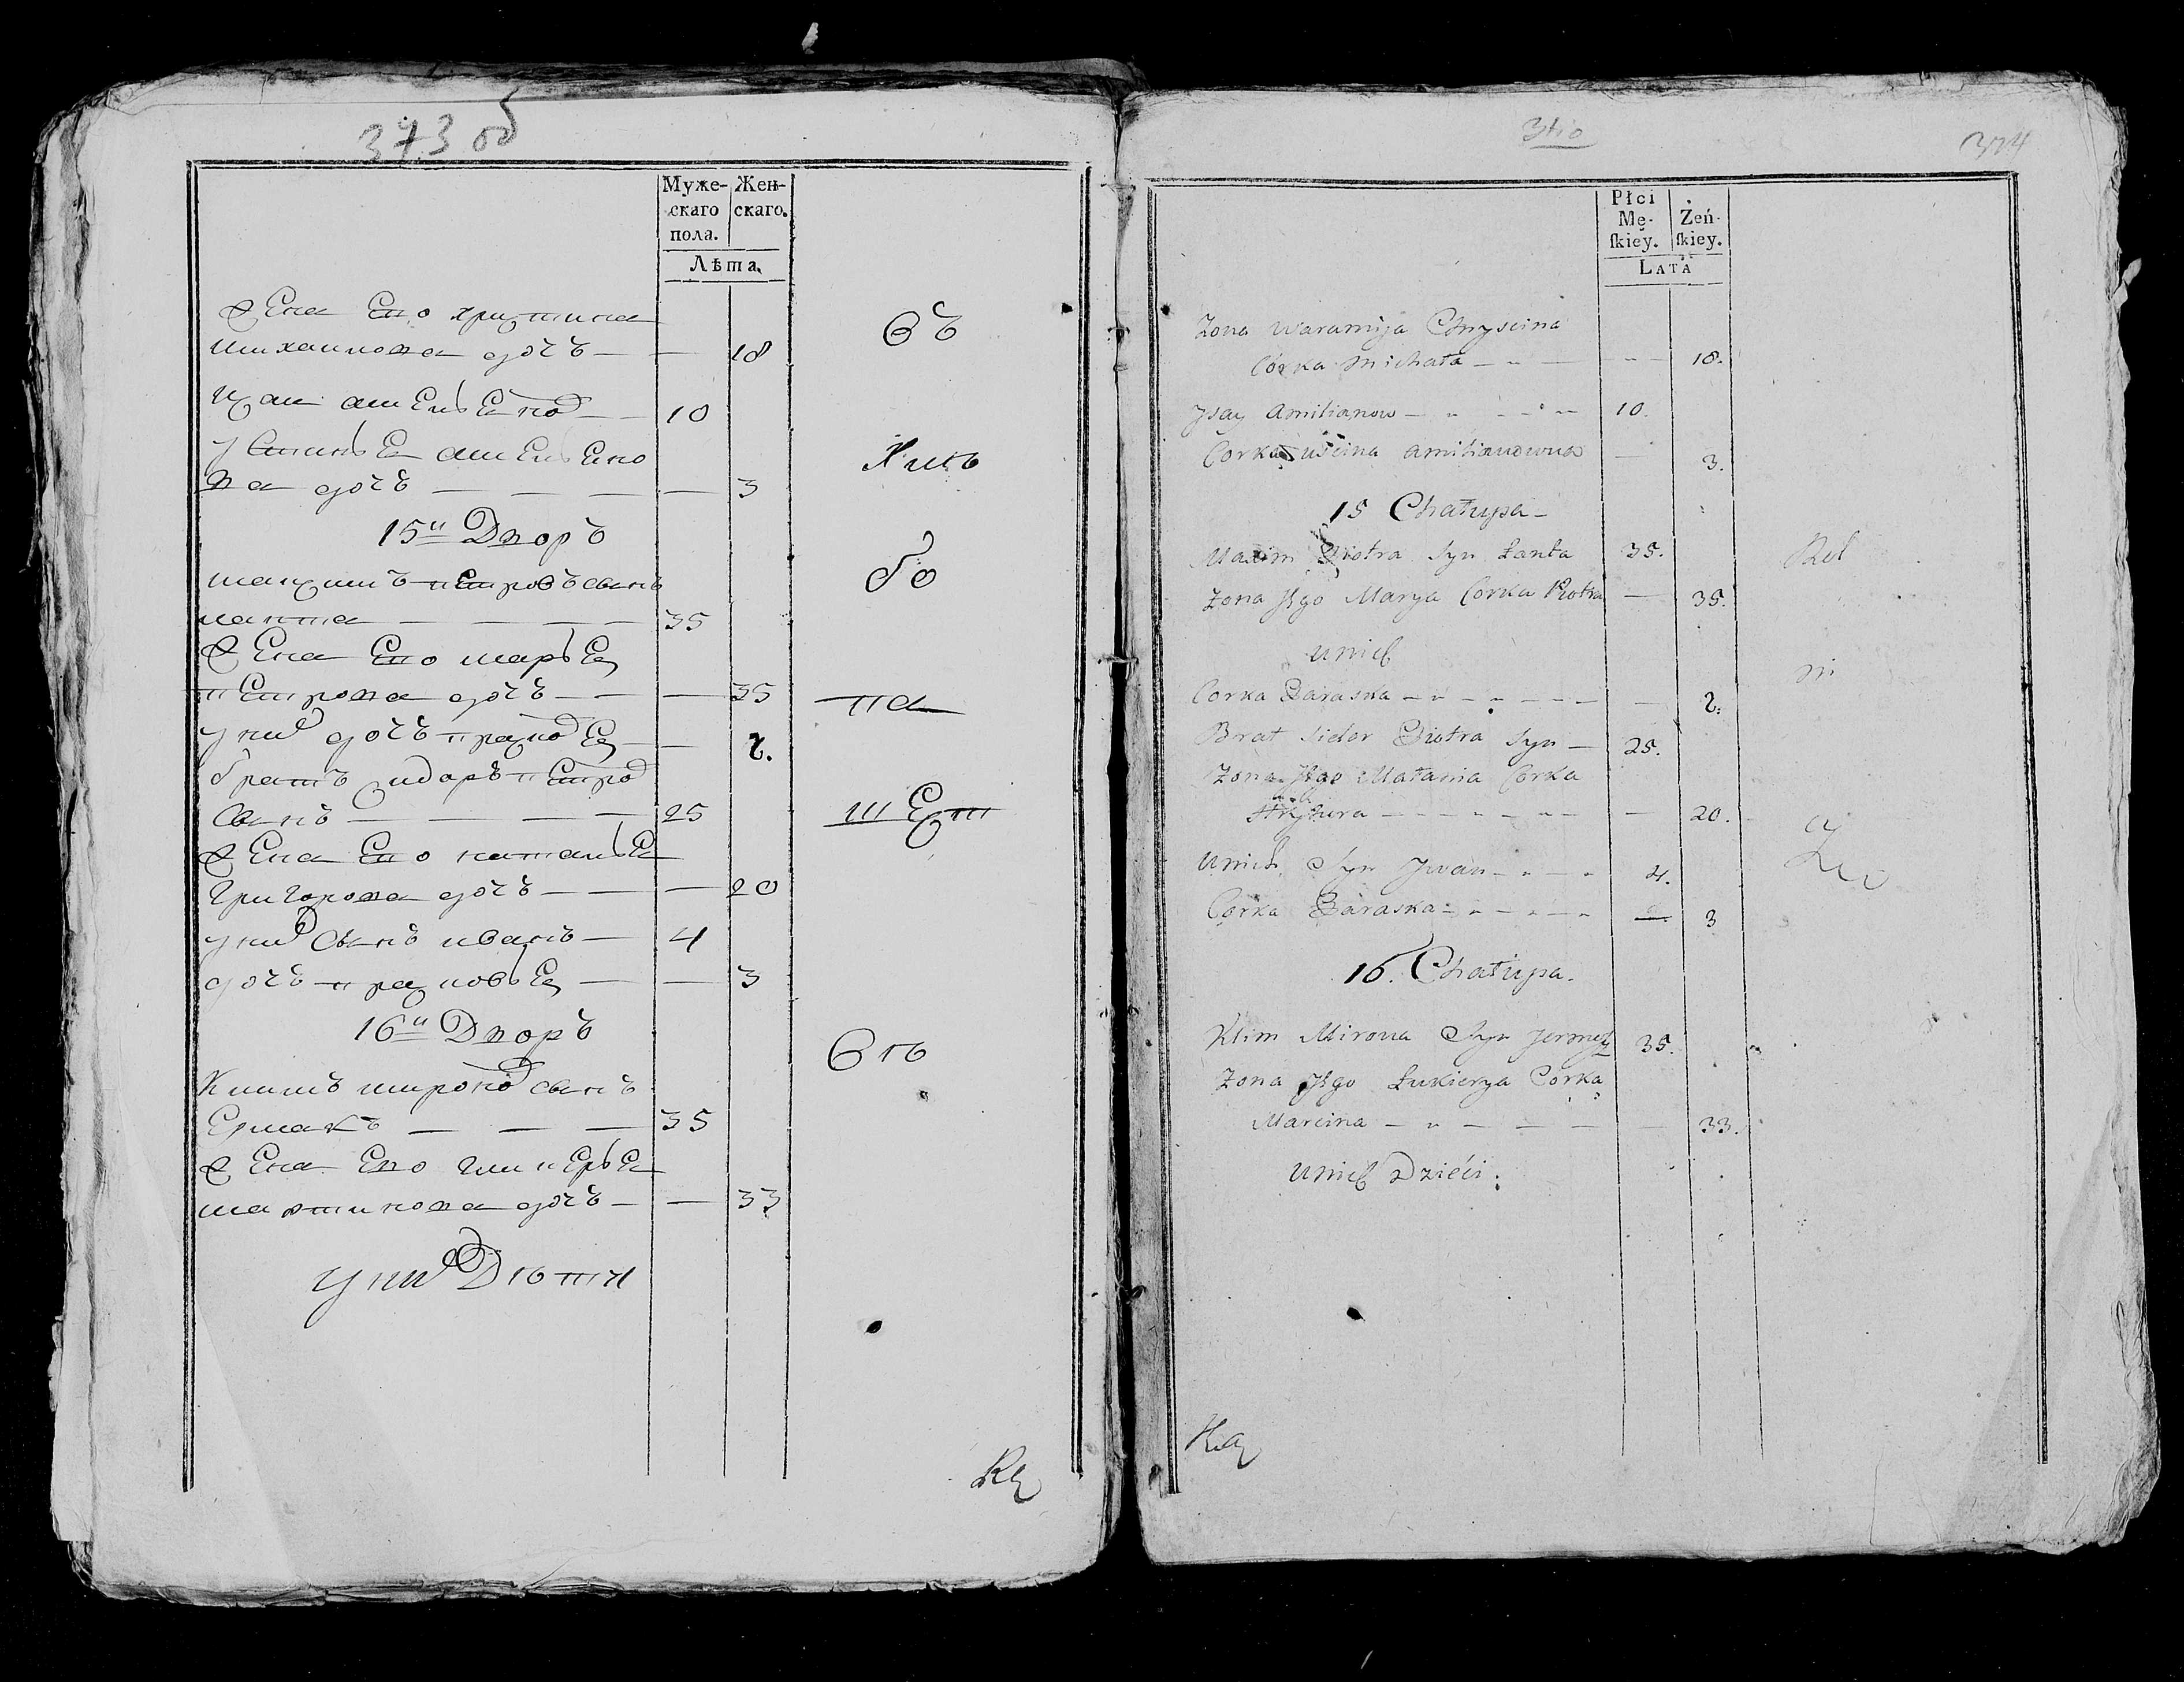 373 об
Муже- Жен-
скаго скаго.
пола.
Лѣта.
жена Его христина
михаилова дочъ — — 18
Исаи амельянов — 10
устинья амельяно
ва дочъ — — — — 3
15й Дворъ
максимъ петровъ сынъ
лапта — — — 35
жена Его марья
петрова дочъ — — 35
у них дочъ прасковья — 2.
братъ сидоръ петров
сынъ — — — — 25
жена Его наталья
григорова дочъ — — — 20
у них сынъ иванъ — 4
дочъ прасковья — — 3
16й Дворъ
Климъ миронов сынъ
Ермакъ — — — 35
жена Его гликерья
мартинова дочъ — — 33
у них Дѣти
въ
Хипъ
бо
па
шест
вѣ
374
Płci
Mę- Żeń-
ſkiey. ſkiey.
LATA
Zona Waramija Chryscina
Córka Michała — — — 18.
Jsay Amilianow — — 10.
Corka uscina amilianowna — 3.
15 Chałupa —
Maxim Piotra Syn Łanta 35.
Zona Jego Marya Corka Piotra — 35.
unich
Corka Paraska — — — — 2.
Brat Sidor Piotra Syn — 25.
Zona Jego Natania Corka
— — — — 20.
Unich Syn Jwan — — 4.
Corka Paraska — — — 3
16. Chałupa.
Klim Mirona Syn 35.
Zona Jego Łukierya Corka
Marcina — — — — 33.
Unich Dzieci.